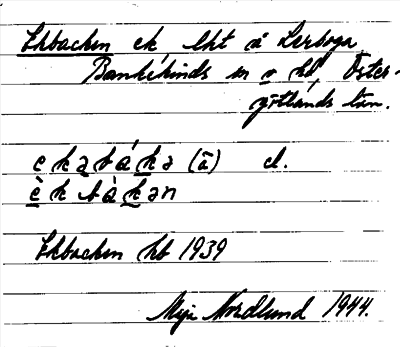 Ekbacken ek, lht å Lerboga
Bankekinds sn o hd, Öster-
götlands län.
e k a b á k a (ā) el.
è k b à k ə n
Ekbacken hb 1939
Nordlund 1944.